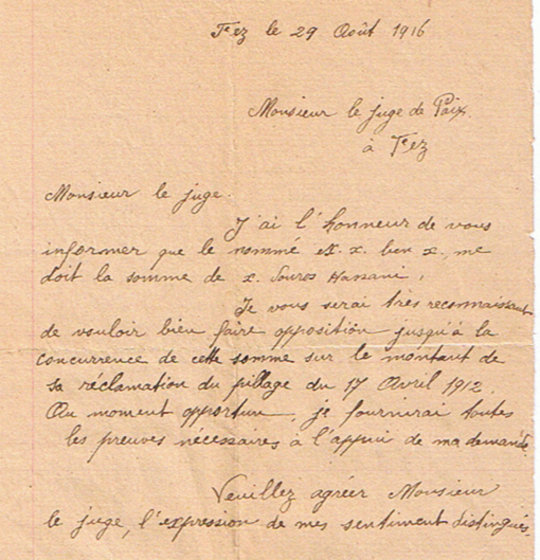 Fez le 29 Août 1916
Monsieur le juge de Paix
à Fez
Monsieur le juge.
J'ai l'honneur de vous
informer que le nommé M. x. ben x. me
doit la somme de x. Douros Hassani.
Je vous serai très reconnaissant
de vouloir bien faire opposition jusqu'à la
concurrence de cette somme sur le montant de
sa réclamation du pillage du 17 Avril 1912.
Au moment opportun, je fournirai toutes
les preuves nécessaires à l'appui de ma demande.
Veuillez agréer Monsieur
le juge, l'expression de mes sentiment distingués.